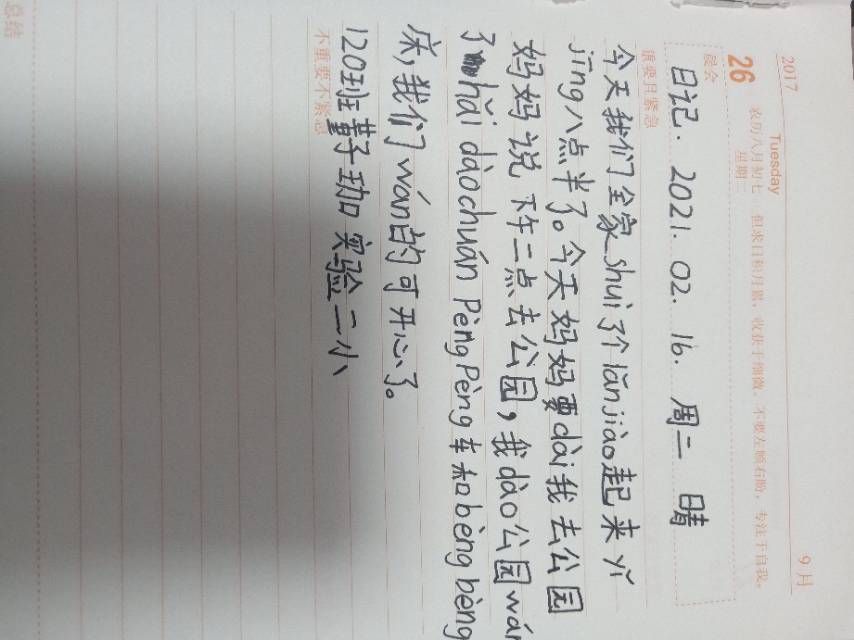 2017
9月
26
Tuesday
星期二
农历八月初七
但求日积月累，收获于细微，不要左顾右盼，专注于自我。
晨会
日记. 2021. 02. 16. 周二 晴
很要且紧急
今天我们全家shuì了个lǎnjiào起来yǐ
jīng八点半了。今天妈妈要dài我去公园
妈妈说下午二点去公园，我dào公园wán
了hǎi dàochuán Pèng Pèng车和bèng bèng
床，我们wán的可开心了。
120班董子珈实验二小
不重要不紧急
总结